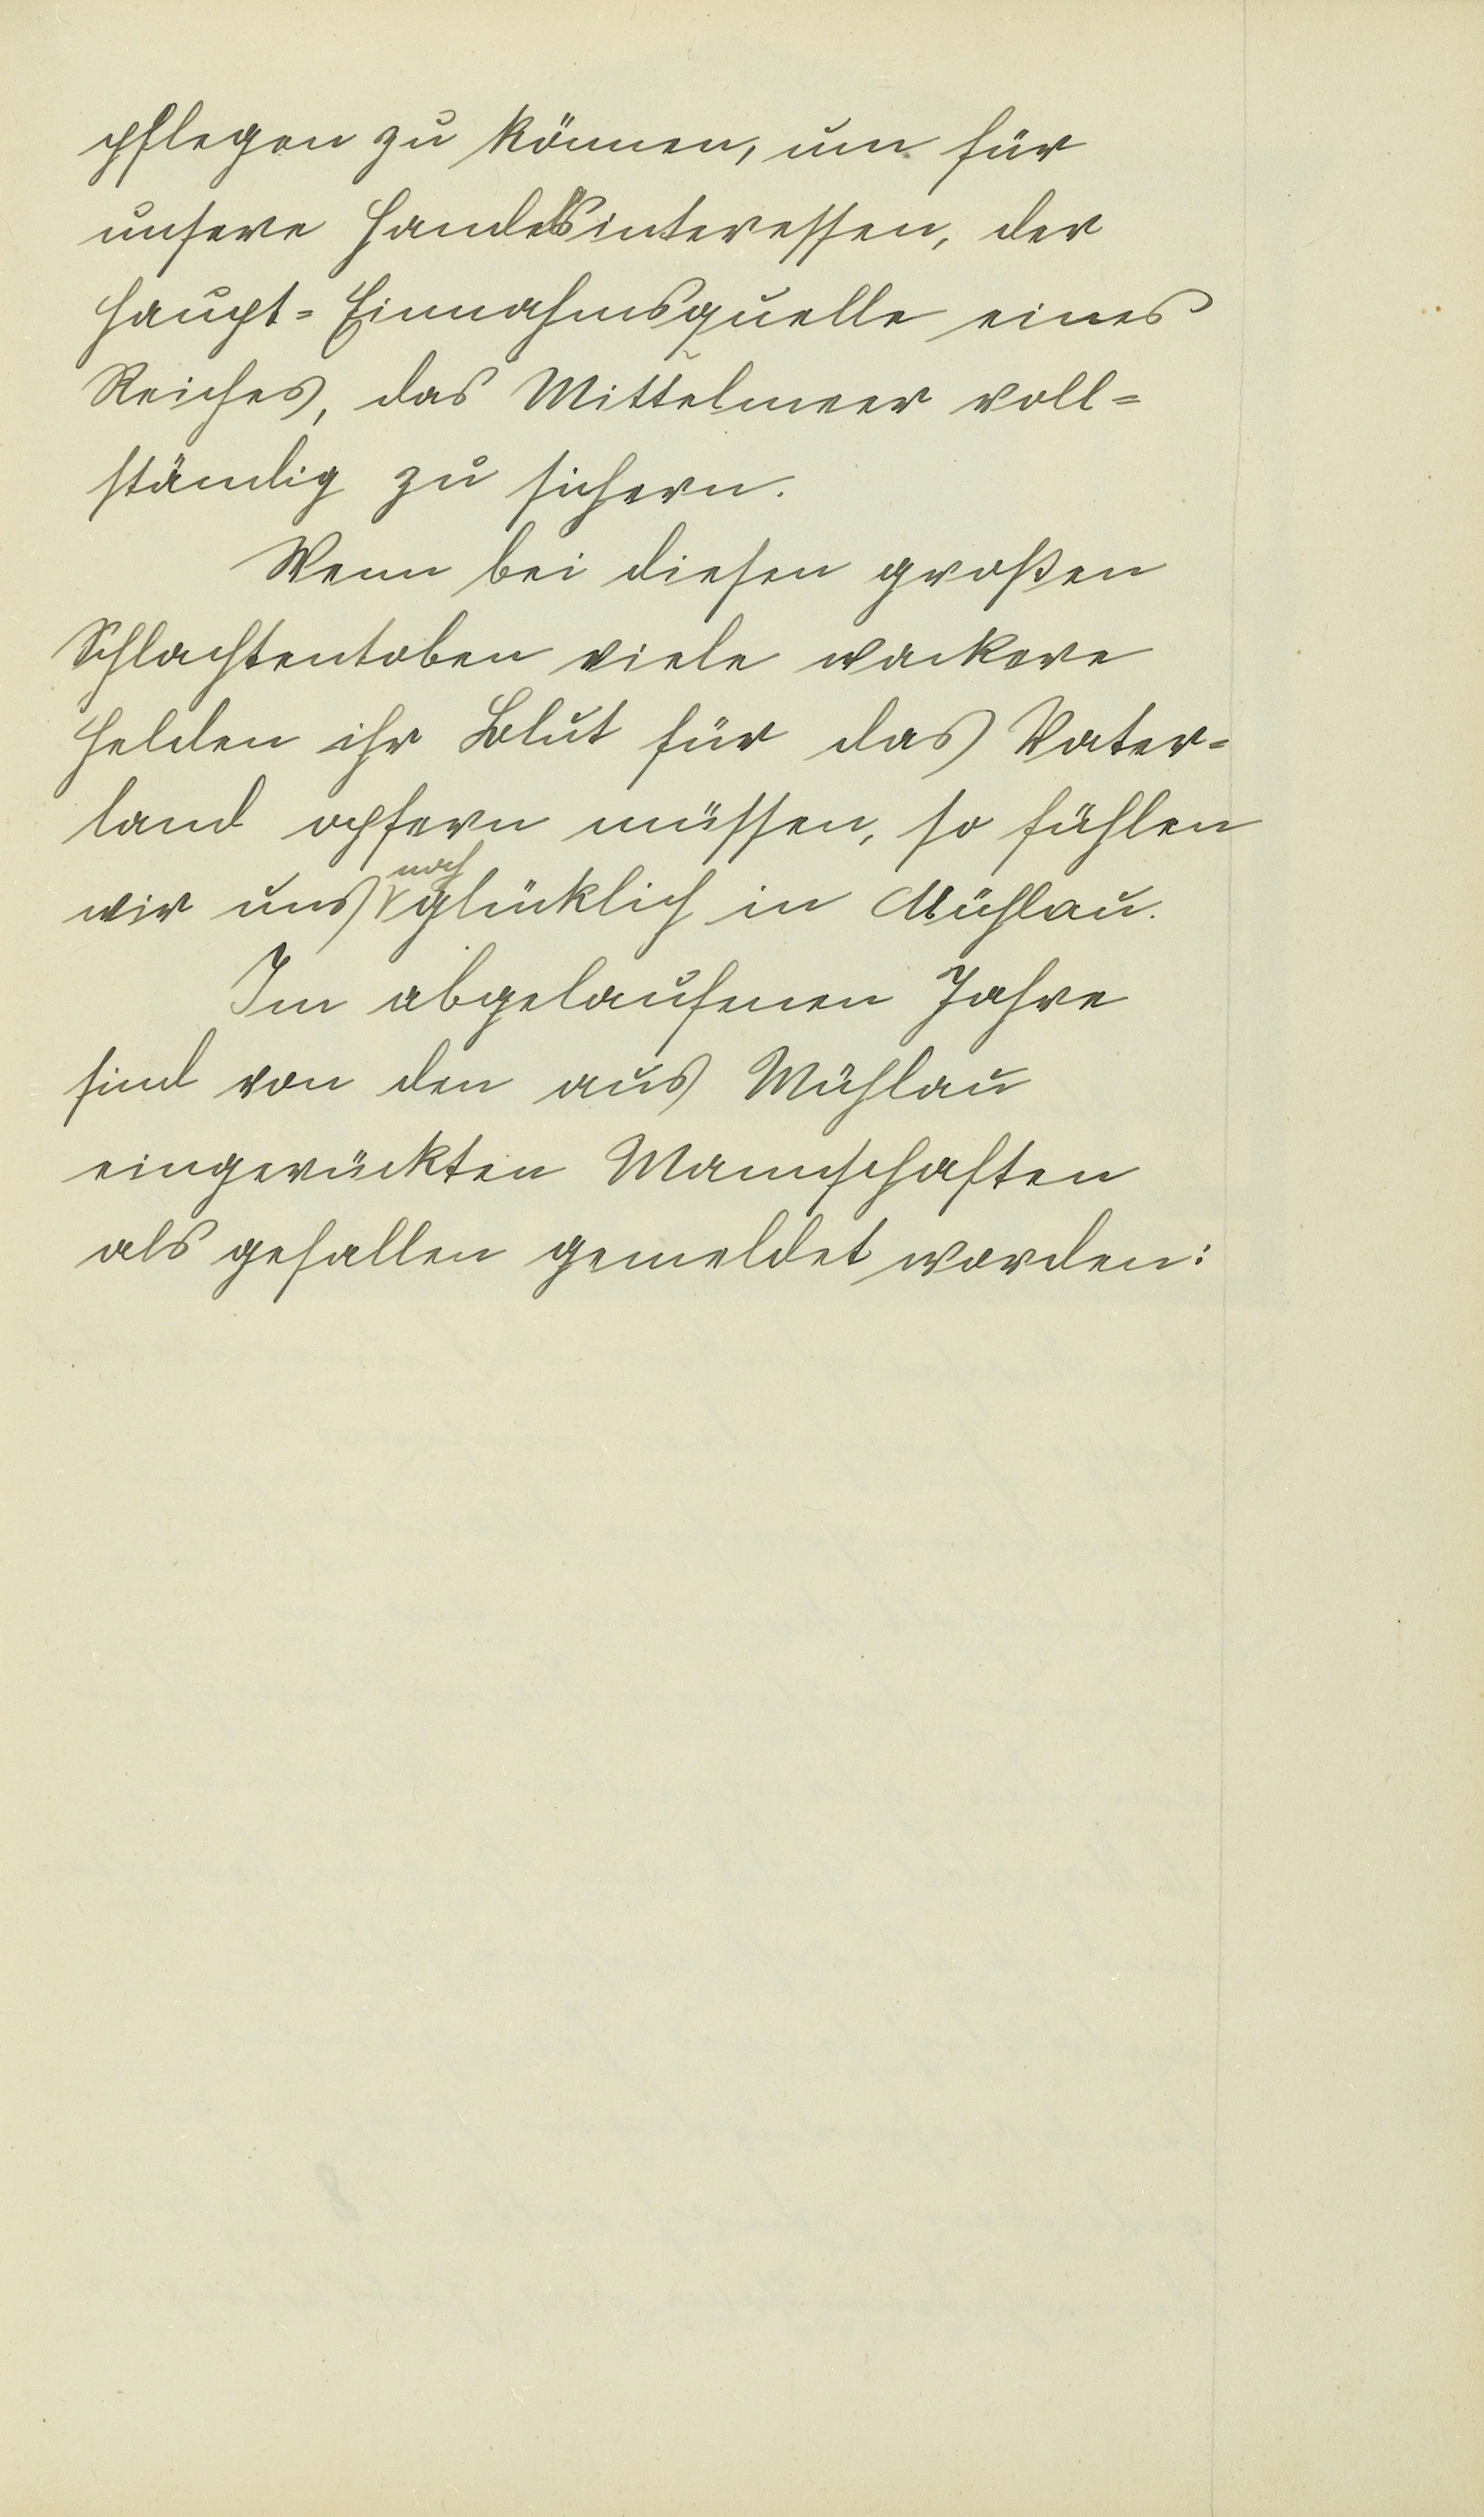 pflegen zu können, um für
unsere Handelsinteressen, der
Haupt=Einnahmsquelle eines
Reiches, das Mittelmeer voll=
ständig zu sichern.
Wenn bei diesen großen
Schlachtentoben viele wackere
Helden ihr Blut für das Vater=
land opfern müssen, so fühlen
noch
wir uns glücklich in Mühlau.
Im abgelaufenen Jahre
sind von den aus Mühlau
eingerückten Mannschaften
als gefallen gemeldet worden: